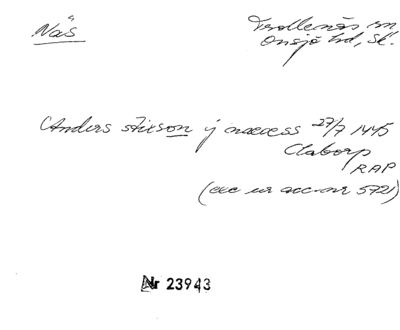 Näs
Trollenäs sn
Onsjö hd, Sk.
Anders stixson j næess 27/7 1445
Claborp
RAP
(exc ur acc-nr 5721)
Nr 23943